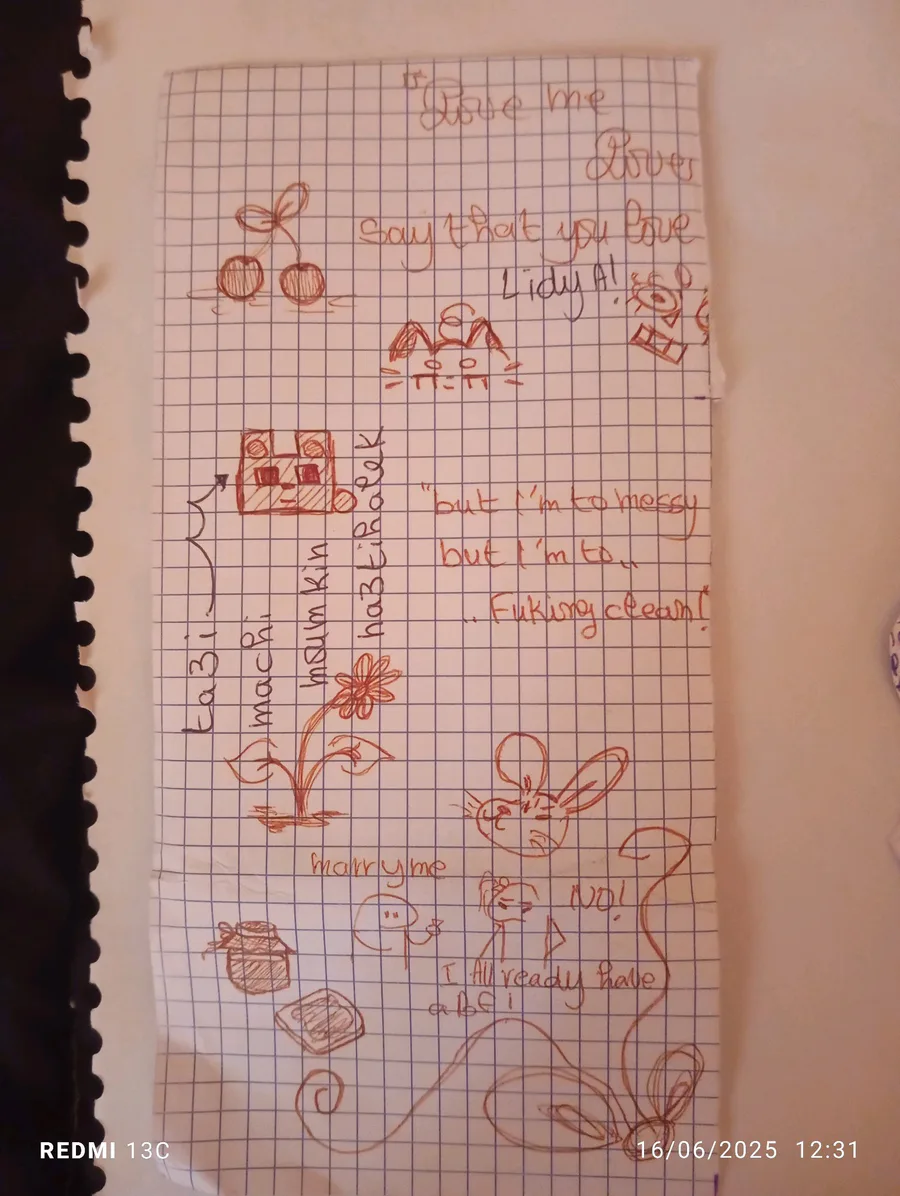 "Love me
Lover
Say that you love
LidyA!
"but I'm to messy
but I'm to..
.. Fuking clean!"
ta3i
machi
moumkin
ha3tihalek
marry me
NO!
I Allready have
a bf!
REDMI 13C
16/06/2025 12:31